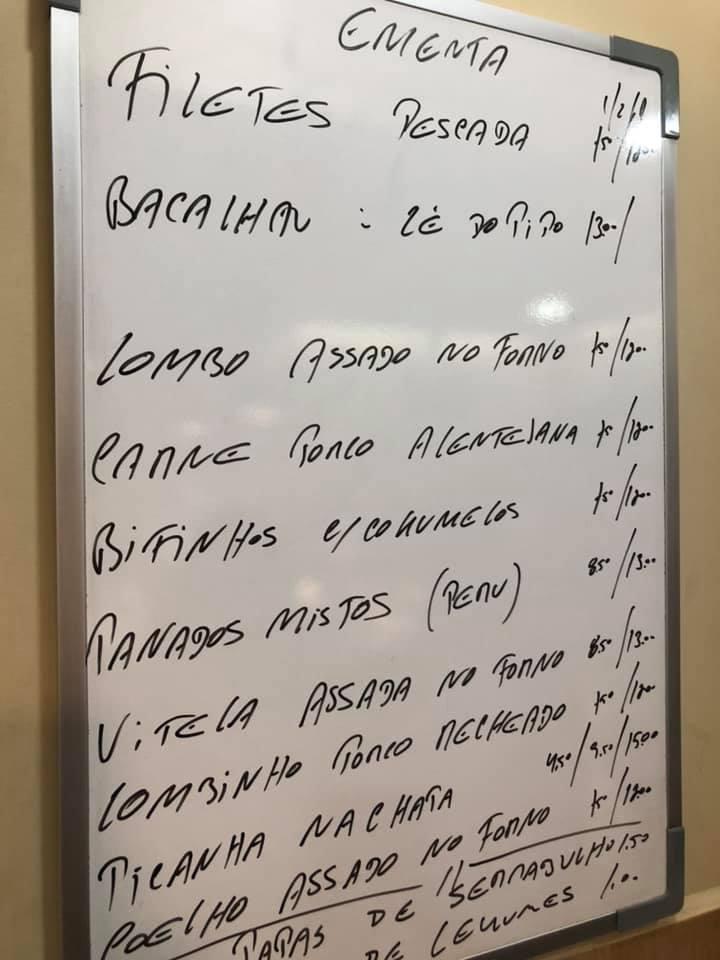 EMENTA
FILETES PESCADA 1/2 /
BACALHAU : ZÉ DO PIPO 13.00/
LOMBO ASSADO NO FORNO 7.50/12.00
CARNE PORCO ALENTEJANA 7.50/12.00
BIFINHOS C/COGUMELOS 7.50/12.00
PANADOS MISTOS (PERU) 8.50/13.00
VITELA ASSADA NO FORNO 8.50/13.00
LOMBINHO PORCO RECHEADO 7.50/12.00
PICANHA NA CHAPA 4.50/9.50/15.00
COELHO ASSADO NO FORNO 7.50/12.00
PAPAS DE SERRABULHO 1.50
DE LEGUMES 1.0.